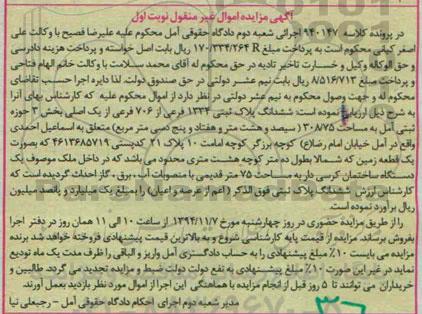 آگهی مزایده اموال غیر منقول نوبت اول
در پرونده کلاسه ۹۴۰۱۴۷ اجرائی شعبه دوم دادگاه حقوقی آمل محکوم علیه علیرضا فصیح با وکالت علی
اصغر کیقبی محکوم است به پرداخت مبلغ R ۱۷۰/۳۳۴/۲۶۴ ریال بابت اصل خواسته و پرداخت هزینه دادرسی
و حق الوکاله وکیل و خسارت تاخیر تادیه در حق محکوم له آقای محمد سلامت با وکالت خانم الهام فتاحی
و پرداخت مبلغ ۸/۵۱۶/۷۱۳ ریال بابت نیم عشر دولتی در حق صندوق دولت. لذا دایره اجرا حسب تقاضای
محکوم له و جهت وصول محکوم به نیم عشر دولتی در نظر دارد از اموال محکوم علیه که کارشناس بهای آنرا
به شرح ذیل ارزیابی نموده است: ششدانگ پلاک ثبتی ۱۳۳۴ فرعی از ۷۰۶ فرعی از یک اصلی بخش ۳ حوزه
ثبتی آمل به مساحت ۳۰۸/۷۵ (سیصد و هشت متر و هفتاد و پنج دسی متر مربع) متعلق به اسماعیل احمدی
واقع در آمل خیابان امام رضا(ع) کوچه برزگر کوچه امامت ۱۰ پلاک ۲۱ کدپستی ۴۶۱۳۶۸۵۷۱۹ که بصورت
یک قطعه زمین که شمالا بطول ده متر کوچه هشت متری محدود می باشد که در داخل ملک موصوف یک
دستگاه ساختمان کرسی دار به مساحت ۷۵ متر قدیمی با منصوبات آب، برق، گاز احداث گردیده است که
کارشناس ارزش ششدانگ پلاک ثبتی فوق الذکر (اعم از عرصه و اعیان) را بمبلغ یک میلیارد و پانصد میلیون
ریال برآورد نموده است.
را از طریق مزایده حضوری در روز چهارشنبه مورخ ۱۳۹۴/۱۱/۷ از ساعت ۱۰ الی ۱۱ همان روز در دفتر اجرا
بفروش برساند. مزایده از قیمت پایه کارشناسی شروع و به بالاترین قیمت پیشنهادی فروخته خواهد شد برنده
مزایده می بایست ۱۰٪ مبلغ پیشنهادی را به حساب دادگستری آمل واریز و الباقی را ظرف مدت یک ماه تودیع
نماید در غیر این صورت ۱۰٪ مبلغ پیشنهادی به نفع دولت ضبط و مزایده تجدید می گردد. طالبین و
خریداران می توانند تا ۵ روز قبل از انجام مزایده با هماهنگی این اجرا از اموال مورد نظر بازدید بعمل آورند.
مدیر شعبه دوم اجرای احکام دادگاه حقوقی آمل - رجبعلی نیا